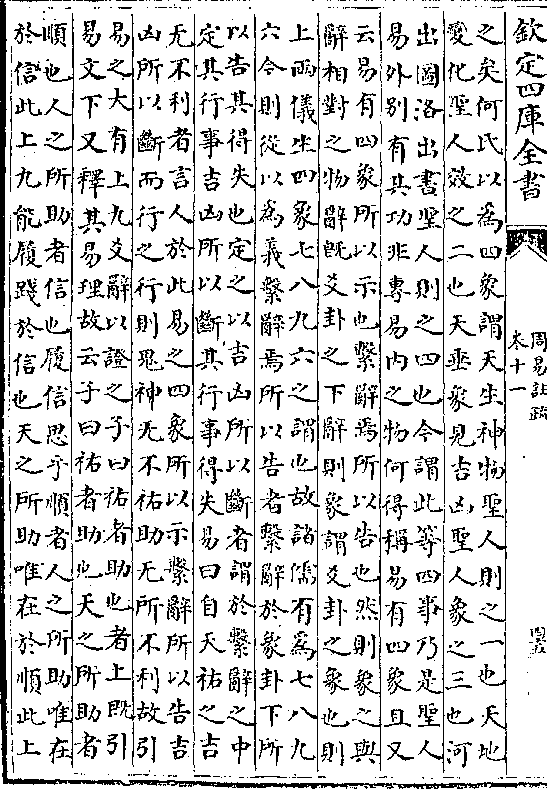 欽定四庫全書
周易註疏
卷十一
四五
之矣何氏以為四象謂天生神物聖人則之一也天地
變化聖人效之二也天垂象見吉凶聖人象之三也河
出圖洛出書聖人則之四也今謂此等四事乃是聖人
易外別有其功非專易內之物何得稱易有四象且又
云易有四象所以示也繫辭焉所以告也然則象之與
辭相對之物辭既爻卦之下辭則象謂爻卦之象也則
上兩儀生四象七八九六之謂也故諸儒有為七八九
六今則從以為義繫辭焉所以告者繫辭於象卦下所
以告其得失也定之以吉凶所以斷者謂於繫辭之中
定其行事吉凶所以斷其行事得失易曰自天祐之吉
无不利者言人於此易之四象所以示繫辭所以告吉
凶所以斷而行之行則鬼神无不祐助无所不利故引
易之大有上九爻辭以證之子曰祐者助也者上既引
易文下又釋其易理故云子曰祐者助也天之所助者
順也人之所助者信也履信思乎順者人之所助唯在
於信此上九能履踐於信也天之所助唯在於順此上